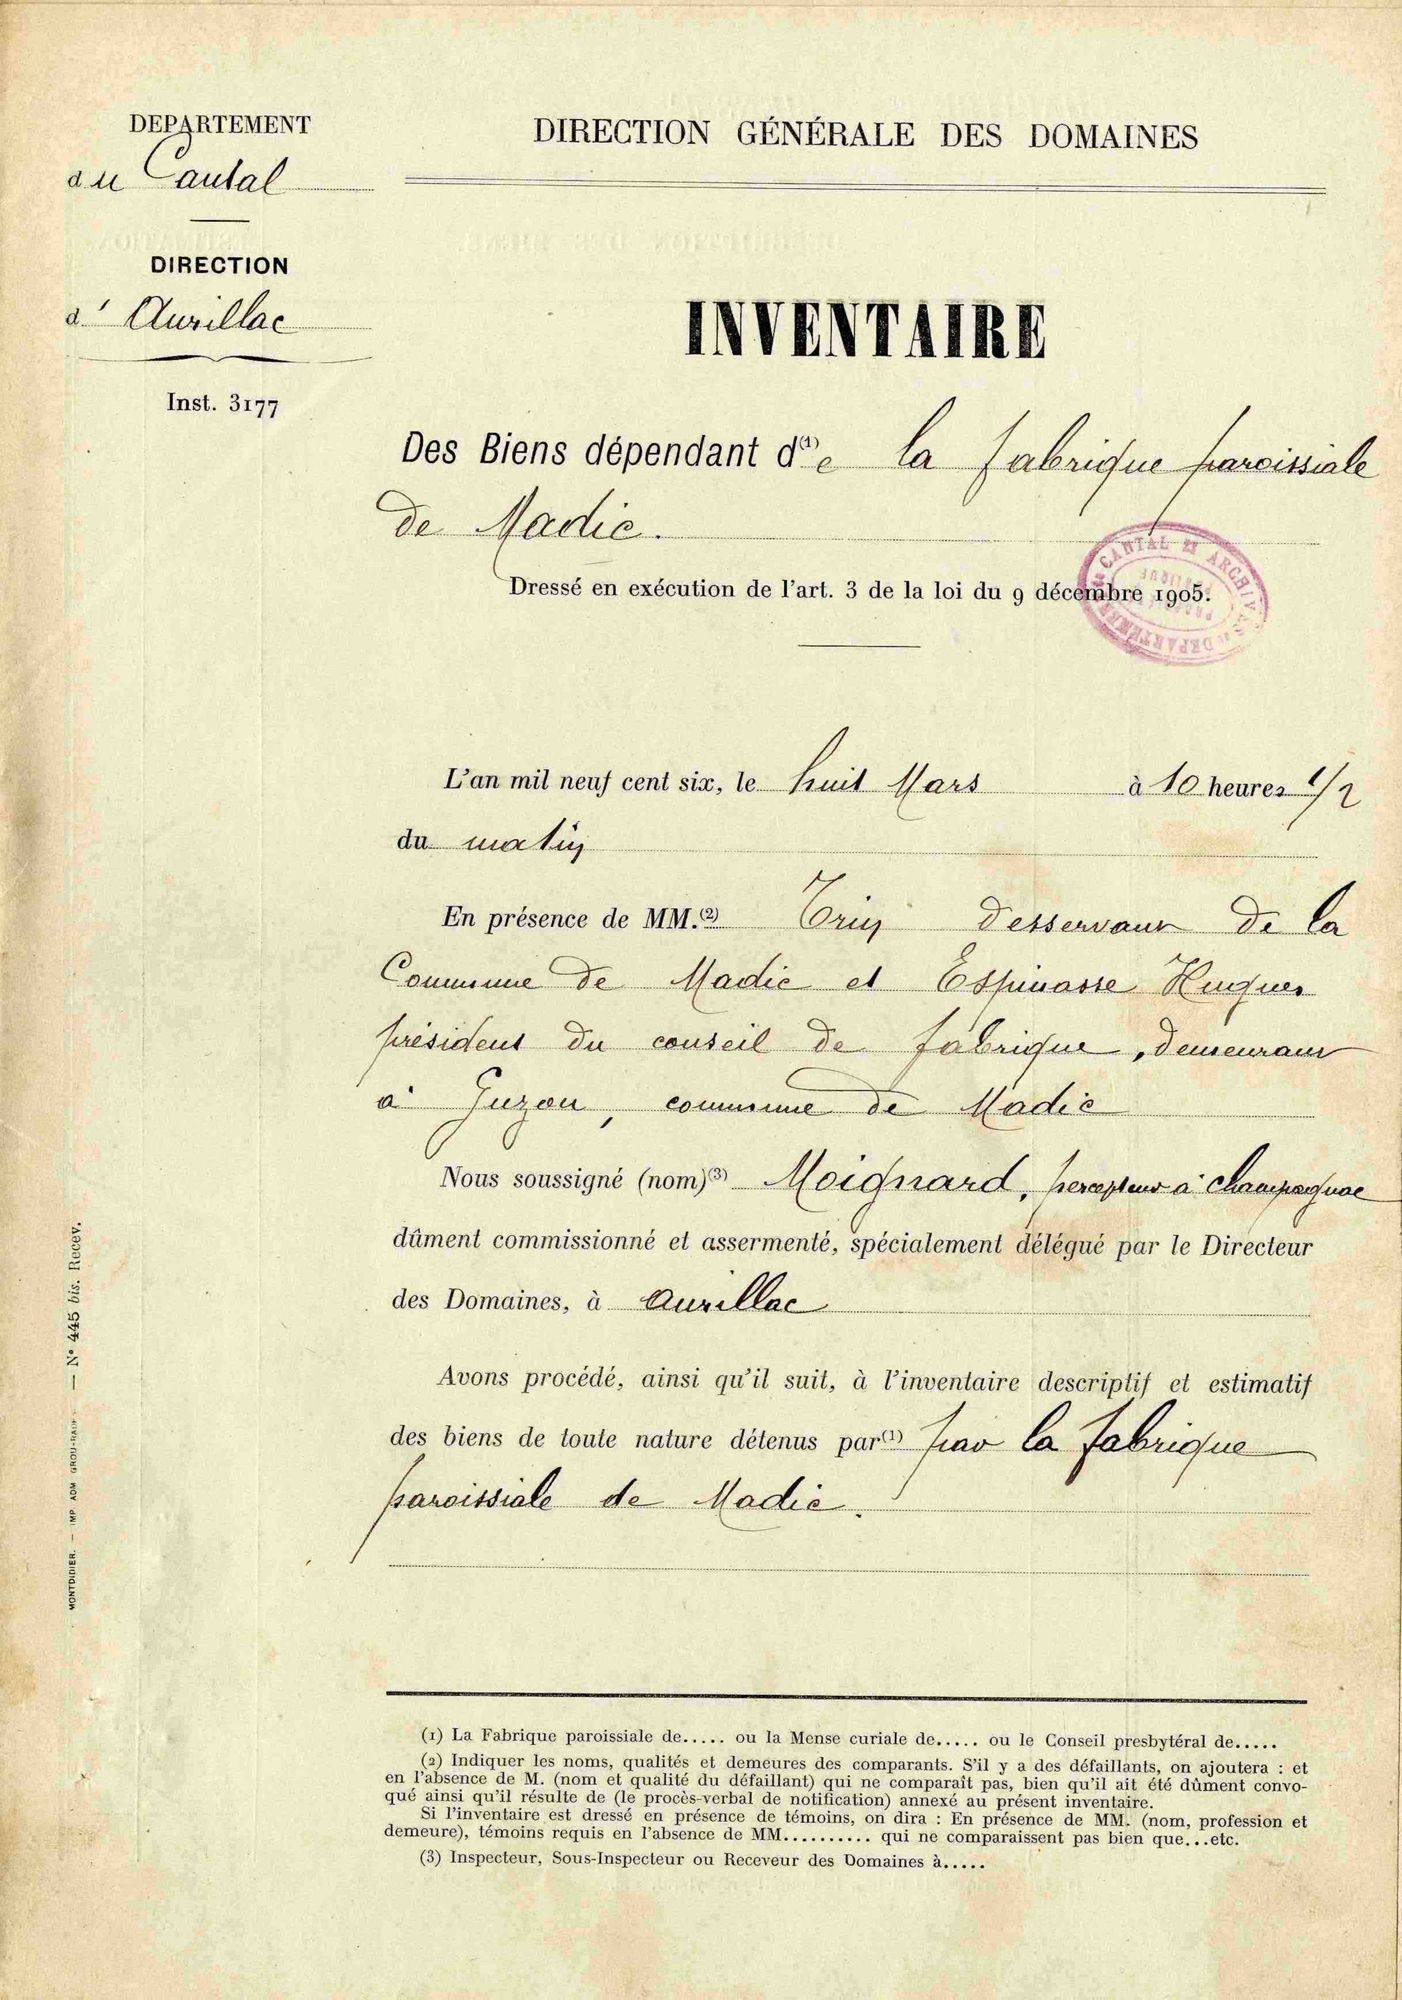 DEPARTEMENT
du Cantal
DIRECTION
d' Aurillac
Inst. 3177
DIRECTION GÉNÉRALE DES DOMAINES
INVENTAIRE
Des Biens dépendant d(1)e la fabrique paroissiale
de Madic.
Dressé en exécution de l'art. 3 de la loi du 9 décembre 1905.
CANTAL ARCHIVES DEPARTEMENT
L'an mil neuf cent six, le huit Mars à 10 heures 1/2
du matin
En présence de MM.(2) desservant de la
Commune de Madic et Espinasse Hugues
président du conseil de fabrique, demeurant
à Guzou, commune de Madic
Nous soussigné (nom)(3) Moignard, percepteur à Champagnac
dûment commissionné et assermenté, spécialement délégué par le Directeur
des Domaines, à Aurillac
Avons procédé, ainsi qu'il suit, à l'inventaire descriptif et estimatif
des biens de toute nature détenus par(1) par la fabrique
paroissiale de Madic.
(1) La Fabrique paroissiale de..... ou la Mense curiale de..... ou le Conseil presbytéral de.....
(2) Indiquer les noms, qualités et demeures des comparants. S'il y a des défaillants, on ajoutera : et
en l'absence de M. (nom et qualité du défaillant) qui ne comparaît pas, bien qu'il ait été dûment convo-
qué ainsi qu'il résulte de (le procès-verbal de notification) annexé au présent inventaire.
Si l'inventaire est dressé en présence de témoins, on dira : En présence de MM. (nom, profession et
demeure), témoins requis en l'absence de MM.......... qui ne comparaissent pas bien que...etc.
(3) Inspecteur, Sous-Inspecteur ou Receveur des Domaines à.....
MONTDIDIER. — IMP. ADM GROU-RADE — N° 445 bis. Recev.